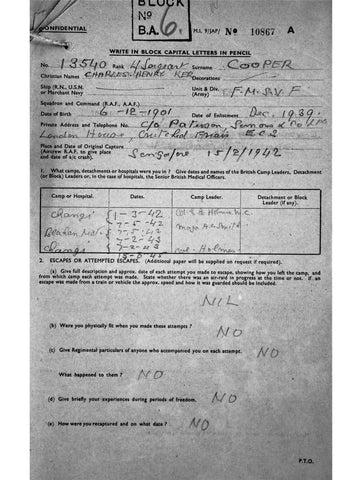 BLOCK
Nº
B.A. 6.
CONFIDENTIAL
M.I. 9/JAP/ Nº 10867 A
WRITE IN BLOCK CAPITAL LETTERS IN PENCIL
No. 13540 Rank Surname COOPER
Christian Names CHARLES HENRY KER Decorations
Ship (R.N., U.S.N. or Merchant Navy) Unit & Div. (Army) F.M.S.V.F
Squadron and Command (R.A.F., A.A.F.)
Date of Birth 6-12-1901 Date of Enlistment Dec. 1939.
Private Address and Telephone No. C/o Simons &
London House Crutched Friars E.C.3
Place and Date of Original Capture Singapore 15/2/1942
(Aircrew R.A.F. to give place and date of a/c crash).
1. What camps, detachments or hospitals were you in? Give dates and names of the British Camp Leaders, Detachment (or Block) Leaders or, in the case of hospitals, the Senior British Medical Officers.
Camp or Hospital. Dates. Camp Leader. Detachment or Block Leader (if any).
Changi 1-3-42
7-5-42
7-5-42
7-2-43
Changi 7-2-43 Col. Holmes
2. ESCAPES OR ATTEMPTED ESCAPES. (Additional paper will be supplied on request if required).
(a) Give full description and approx. date of each attempt you made to escape, showing how you left the camp, and from which camp each attempt was made. State whether there was an air-raid in progress at the time or not. If an escape was made from a train or vehicle the approx. speed and how it was guarded should be included.
NIL
(b) Were you physically fit when you made these attempts? NO
(c) Give Regimental particulars of anyone who accompanied you on each attempt. NO
What happened to them? NO
(d) Give briefly your experiences during periods of freedom. NO
(e) How were you recaptured and on what date? NO
P.T.O.